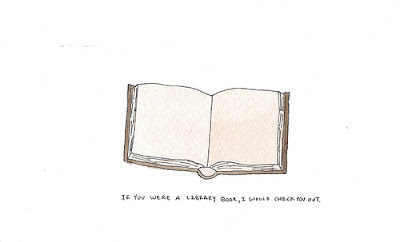 IF YOU WERE A LIBRARY BOOK, I WOULD CHECK YOU OUT.